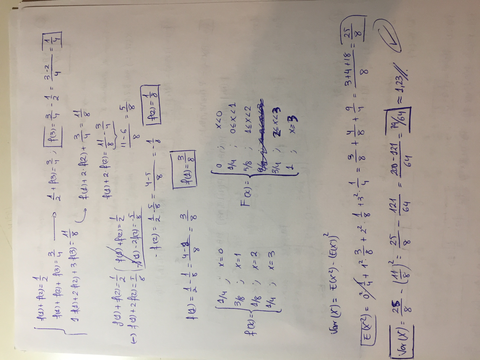 f(1) + f(2) = 1/2
f(1) + f(2) + f(3) = 3/4 → 1/2 + f(3) = 3/4 f(3) = 3/4 - 1/2 = 3-2/4 = 1/4
f(1) + 2f(2) + 3f(3) = 11/8 f(1) + 2·f(2) + 3/4 = 11/8
f(1) + f(2) = 1/2 f(1) + 2f(2) = 11/8 - 3/4
f(1) + 2f(2) = 5/8 11-6/8 = 5/8
- f(2) = 1/2 - 5/8 = 4-5/8 = - 1/8 f(2) = 1/8
f(1) = 1/2 - 1/8 = 4-1/8 = 3/8 f(1) = 3/8
f(x) =
1/4 ; x=0
3/8 ; x=1
1/8 ; x=2
1/4 ; x=3
F(x) =
0 ; x<0
1/4 ; 0≤x<1
5/8 ; 1≤x<2
3/4 ; 2≤x<3
1 ; x≥3
Var(X) = E(X²) - (E(X))²
E(X²) = 0²·1/4 + 1²·3/8 + 2²·1/8 + 3²·1/4 = 3/8 + 4/8 + 9/4 = 3+4+18/8 = 25/8
Var(X) = 25/8 - (11/8)² = 25/8 - 121/64 = 200-121/64 = 79/64 ≈ 1,23